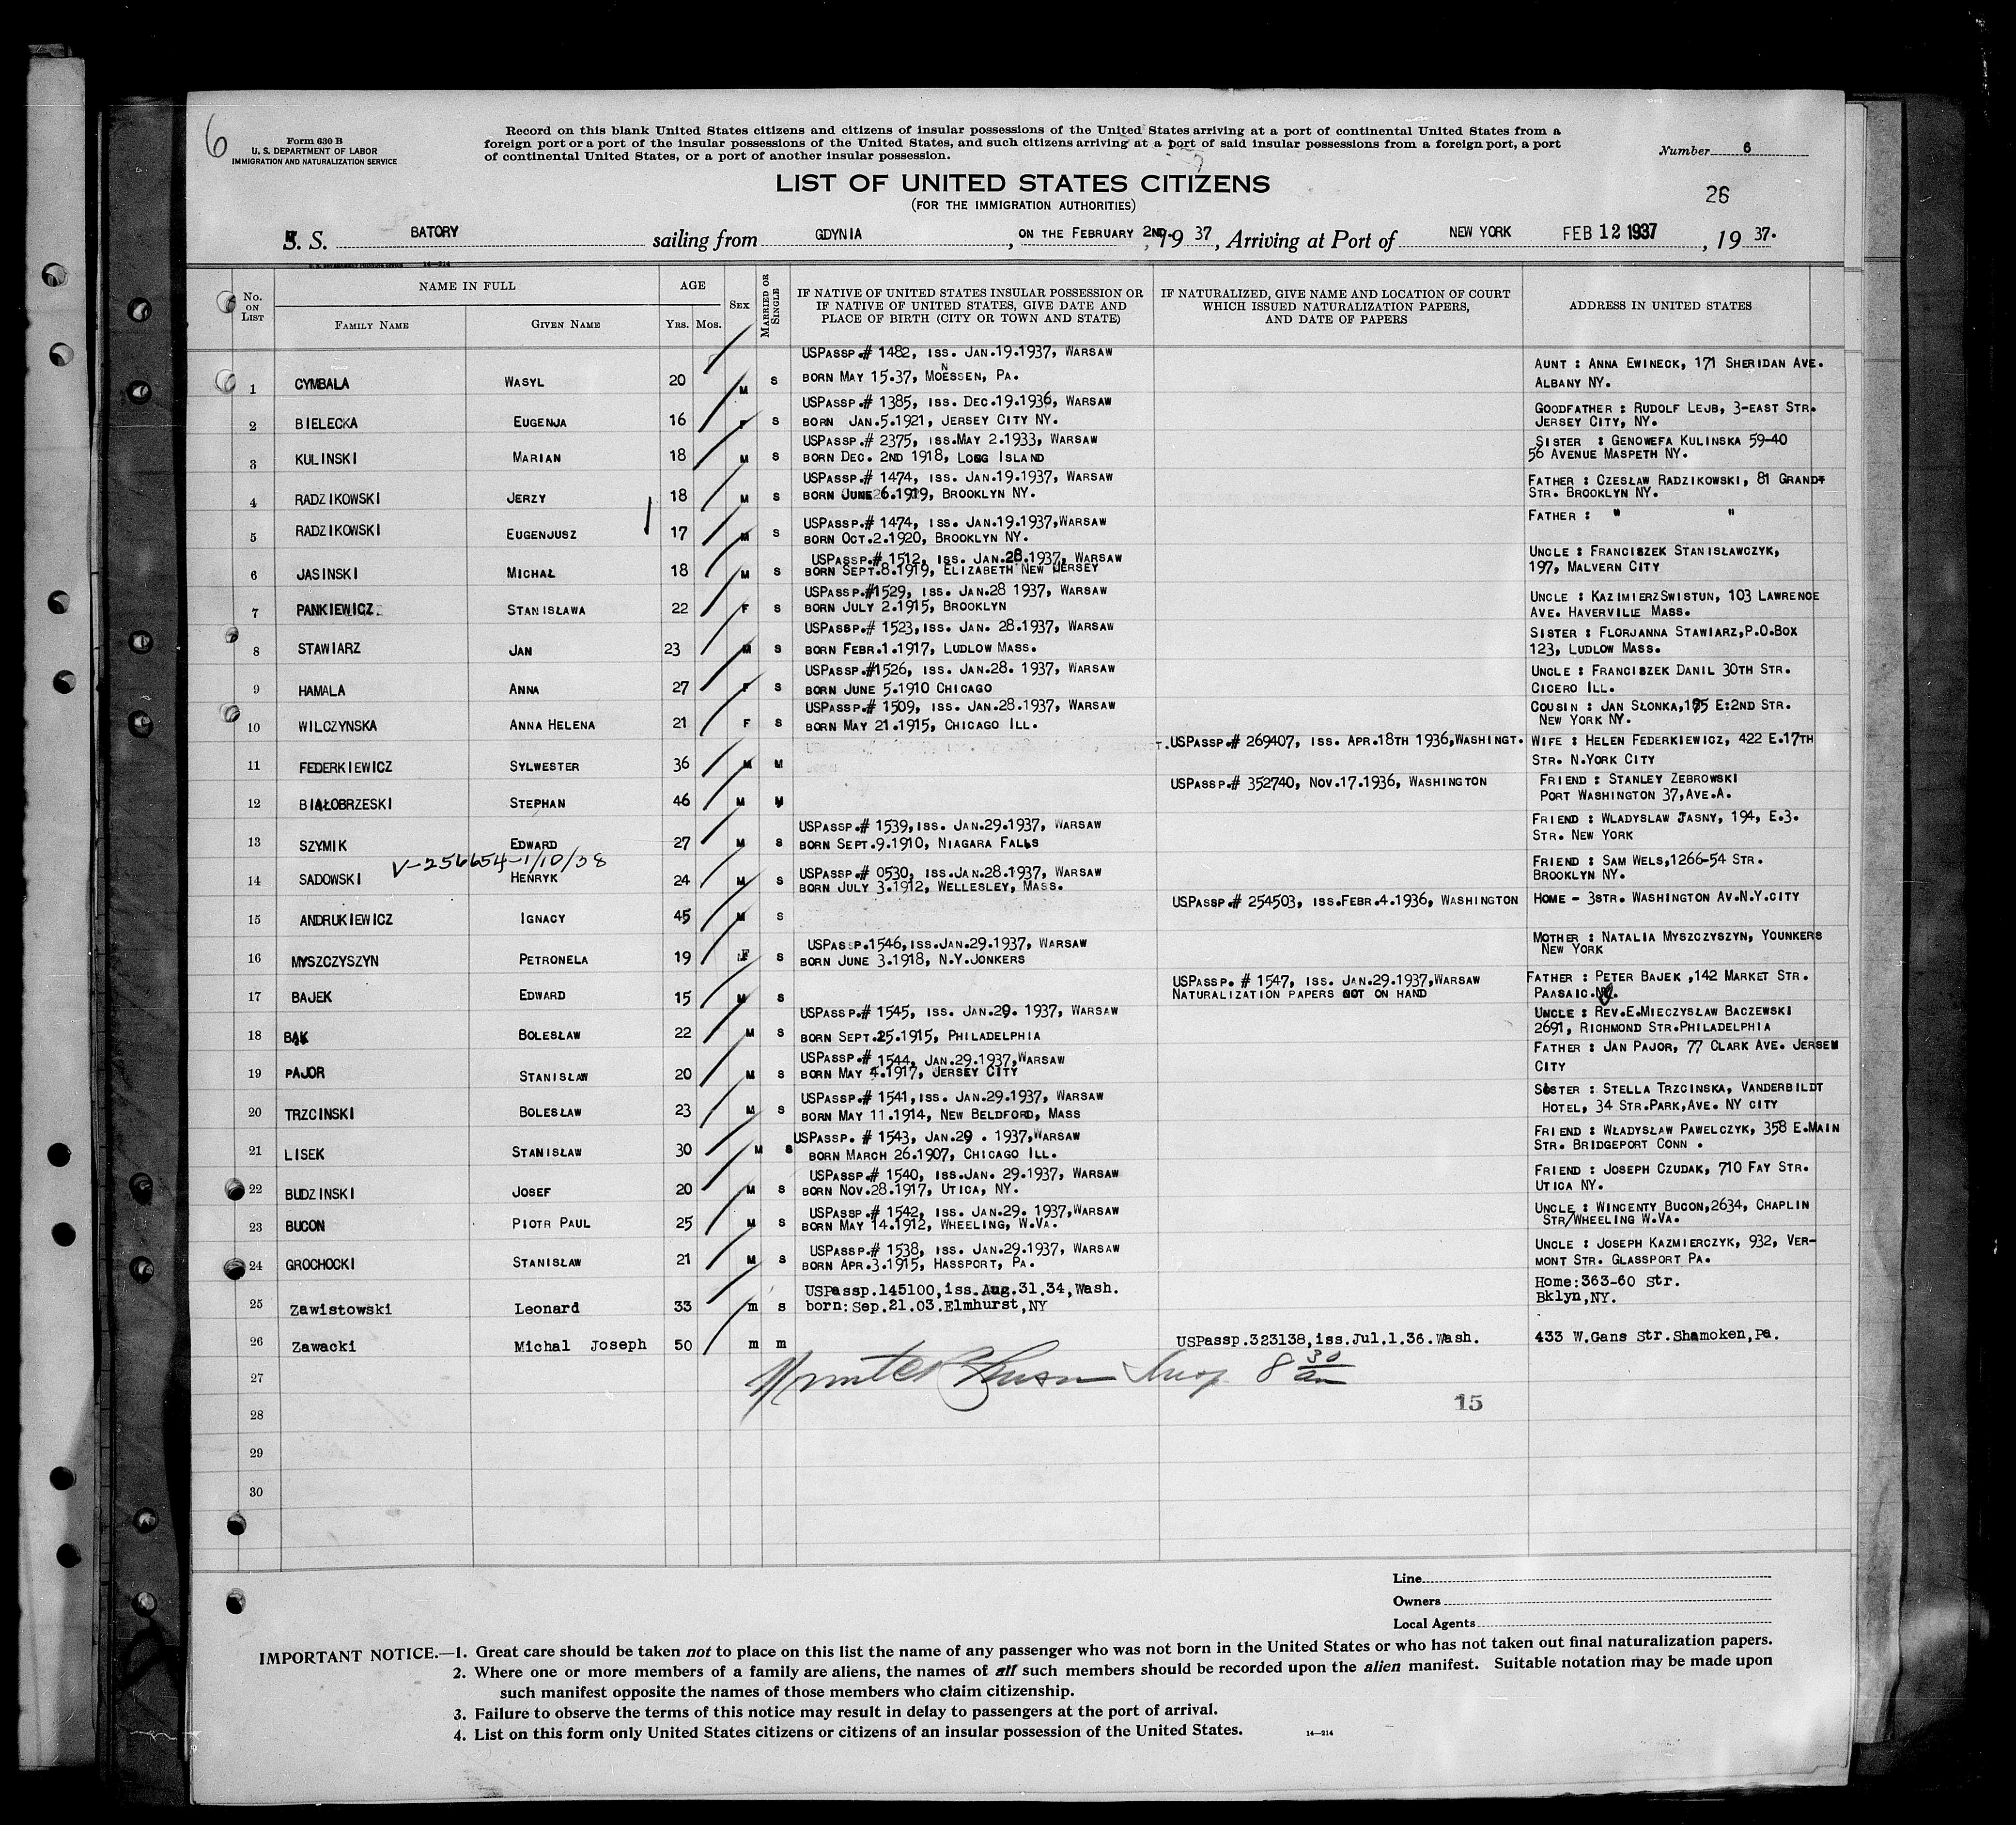 6
Form 630 B
U. S. DEPARTMENT OF LABOR
IMMIGRATION AND NATURALIZATION SERVICE
Record on this blank United States citizens and citizens of insular possessions of the United States arriving at a port of continental United States from a
foreign port or a port of the insular possessions of the United States, and such citizens arriving at a port of said insular possessions from a foreign port, a port
of continental United States, or a port of another insular possession.
Number 6
LIST OF UNITED STATES CITIZENS
(FOR THE IMMIGRATION AUTHORITIES)
26
S. S. BATORY sailing from GDYNIA, ON THE FEBRUARY 2ND., 19 37, Arriving at Port of NEW YORK FEB 12 1937, 19 37.
No. ON LIST
NAME IN FULL
FAMILY NAME
GIVEN NAME
AGE
YRS. MOS.
SEX
MARRIED OR SINGLE
IF NATIVE OF UNITED STATES INSULAR POSSESSION OR
IF NATIVE OF UNITED STATES, GIVE DATE AND
PLACE OF BIRTH (CITY OR TOWN AND STATE)
IF NATURALIZED, GIVE NAME AND LOCATION OF COURT
WHICH ISSUED NATURALIZATION PAPERS,
AND DATE OF PAPERS
ADDRESS IN UNITED STATES
USPASSP.# 1482, ISS. JAN.19.1937, WARSAW AUNT : ANNA EWINECK, 171 SHERIDAN AVE.
1 CYMBALA WASYL 20 M S BORN MAY 15.37, MOESSEN, PA. ALBANY NY.
USPASSP.# 1385, ISS. DEC.19.1936, WARSAW GOODFATHER : RUDOLF LEJB, 3-EAST STR.
2 BIELECKA EUGENJA 16 F S BORN JAN.5.1921, JERSEY CITY NY. JERSEY CITY, NY.
USPASSP.# 2375, ISS.MAY 2.1933, WARSAW SISTER : GENOWEFA KULINSKA 59-40
3 KULINSKI MARIAN 18 M S BORN DEC. 2ND 1918, LONG ISLAND 56 AVENUE MASPETH NY.
USPASSP.# 1474, ISS. JAN.19.1937, WARSAW FATHER : CZESŁAW RADZIKOWSKI, 81 GRANDT
4 RADZIKOWSKI JERZY 18 M S BORN JUNE 6.1919, BROOKLYN NY. STR. BROOKLYN NY.
USPASSP.# 1474, ISS. JAN.19.1937,WARSAW FATHER : " "
5 RADZIKOWSKI EUGENJUSZ 17 M S BORN OCT.2.1920, BROOKLYN NY.
USPASSP.# 1512, ISS. JAN.28.1937, WARSAW UNCLE : FRANCISZEK STANISŁAWCZYK,
6 JASINSKI MICHAŁ 18 M S BORN SEPT.8.1919, ELIZABETH NEW JERSEY 197, MALVERN CITY
USPASSP.#1529, ISS. JAN.28 1937, WARSAW UNCLE : KAZIMIERZSWISTUN, 103 LAWRENCE
7 PANKIEWICZ STANISŁAWA 22 F S BORN JULY 2.1915, BROOKLYN AVE. HAVERVILLE MASS.
USPASSP.# 1523,ISS. JAN. 28.1937, WARSAW SISTER : FLORJANNA STAWIARZ,P.O.BOX
8 STAWIARZ JAN 23 M S BORN FEBR.1.1917, LUDLOW MASS. 123, LUDLOW MASS.
USPASSP.#1526, ISS. JAN.28. 1937, WARSAW UNCLE : FRANCISZEK DANIL 30TH STR.
9 HAMALA ANNA 27 F S BORN JUNE 5.1910 CHICAGO CICERO ILL.
USPASSP.# 1509, ISS. JAN.28.1937, WARSAW COUSIN : JAN SŁONKA, E:2ND STR.
10 WILCZYNSKA ANNA HELENA 21 F S BORN MAY 21.1915, CHICAGO ILL. NEW YORK NY.
USPASSP.# 269407, ISS. APR.18TH 1936,WASHINGT. WIFE : HELEN FEDERKIEWICZ, 422 E.17TH
11 FEDERKIEWICZ SYLWESTER 36 M M STR. N.YORK CITY
USPASSP.# 352740, NOV.17.1936, WASHINGTON FRIEND : STANLEY ZEBROWSKI
12 BIAŁOBRZESKI STEPHAN 46 M M PORT WASHINGTON 37,AVE.A.
USPASSP.# 1539,ISS. JAN.29.1937, WARSAW FRIEND : WLADYSLAW JASNY, 194, E.3.
13 SZYMIK EDWARD 27 M S BORN SEPT.9.1910, NIAGARA FALLS STR. NEW YORK
V-256654-1/10/38
USPASSP.# 0530, ISS.JAN.28.1937, WARSAW FRIEND : SAM WELS,1266-54 STR.
14 SADOWSKI HENRYK 24 M S BORN JULY 3.1912, WELLESLEY, MASS. BROOKLYN NY.
USPASSP.# 254503, ISS.FEBR.4.1936, WASHINGTON HOME - 3STR. WASHINGTON AV.N.Y.CITY
15 ANDRUKIEWICZ IGNACY 45 M S
USPASSP.1546,ISS.JAN.29.1937, WARSAW MOTHER : NATALIA MYSZCZYSZYN, YOUNKERS
16 MYSZCZYSZYN PETRONELA 19 F S BORN JUNE 3.1918, N.Y.JONKERS NEW YORK
USPASSP. # 1547, ISS. JAN.29.1937,WARSAW FATHER : PETER BAJEK ,142 MARKET STR.
17 BAJEK EDWARD 15 M S NATURALIZATION PAPERS NOT ON HAND PAASAIC.
USPASSP.# 1545, ISS. JAN.29. 1937, WARSAW UNCLE : REV.E.MIECZYSŁAW BACZEWSKI
18 BĄK BOLESŁAW 22 M S BORN SEPT.25.1915, PHILADELPHIA 2691, RICHMOND STR.PHILADELPHIA
USPASSP.# 1544, JAN.29.1937,WARSAW FATHER : JAN PAJOR, 77 CLARK AVE. JERSEM
19 PAJOR STANISŁAW 20 M S BORN MAY 4.1917, JERSEY CITY CITY
USPASSP.# 1541,ISS. JAN.29.1937, WARSAW SISTER : STELLA TRZCINSKA, VANDERBILDT
20 TRZCINSKI BOLESŁAW 23 M S BORN MAY 11.1914, NEW BELDFORD, MASS HOTEL, 34 STR.PARK,AVE. NY CITY
USPASSP. # 1543, JAN.29 . 1937,WARSAW FRIEND : WŁADYSŁAW PAWELCZYK, 358 E.MAIN
21 LISEK STANISŁAW 30 M S BORN MARCH 26.1907, CHICAGO ILL. STR. BRIDGEPORT CONN .
USPASSP.# 1540, ISS.JAN. 29.1937, WARSAW FRIEND : JOSEPH CZUDAK, 710 FAY STR.
22 BUDZINSKI JOSEF 20 M S BORN NOV.28.1917, UTICA, NY. UTICA NY.
USPASSP.# 1542, ISS. JAN.29. 1937,WARSAW UNCLE : WINCENTY BUGON,2634, CHAPLIN
23 BUGON PIOTR PAUL 25 M S BORN MAY 14.1912, WHEELING, W.VA. STR/WHEELING W.VA.
USPASSP.# 1538, ISS. JAN.29.1937, WARSAW UNCLE : JOSEPH KAZMIERCZYK, 932, VER-
24 GROCHOCKI STANISŁAW 21 M S BORN APR.3.1915, HASSPORT, PA. MONT STR. GLASSPORT PA.
USPassp.145100,iss.Aug.31.34,Wash. Home:363-60 Str.
25 Zawistowski Leonard 33 m s born:Sep.21.03.Elmhurst,NY Bklyn,NY.
26 Zawacki Michal Joseph 50 m m USPassp.323138,iss.Jul.1.36.Wash. 433 W.Gans Str.Shamoken,Pa.
27 8 30
28 15
29
30
Line
Owners
Local Agents
IMPORTANT NOTICE.—1. Great care should be taken not to place on this list the name of any passenger who was not born in the United States or who has not taken out final naturalization papers.
2. Where one or more members of a family are aliens, the names of all such members should be recorded upon the alien manifest. Suitable notation may be made upon
such manifest opposite the names of those members who claim citizenship.
3. Failure to observe the terms of this notice may result in delay to passengers at the port of arrival.
4. List on this form only United States citizens or citizens of an insular possession of the United States. 14—214